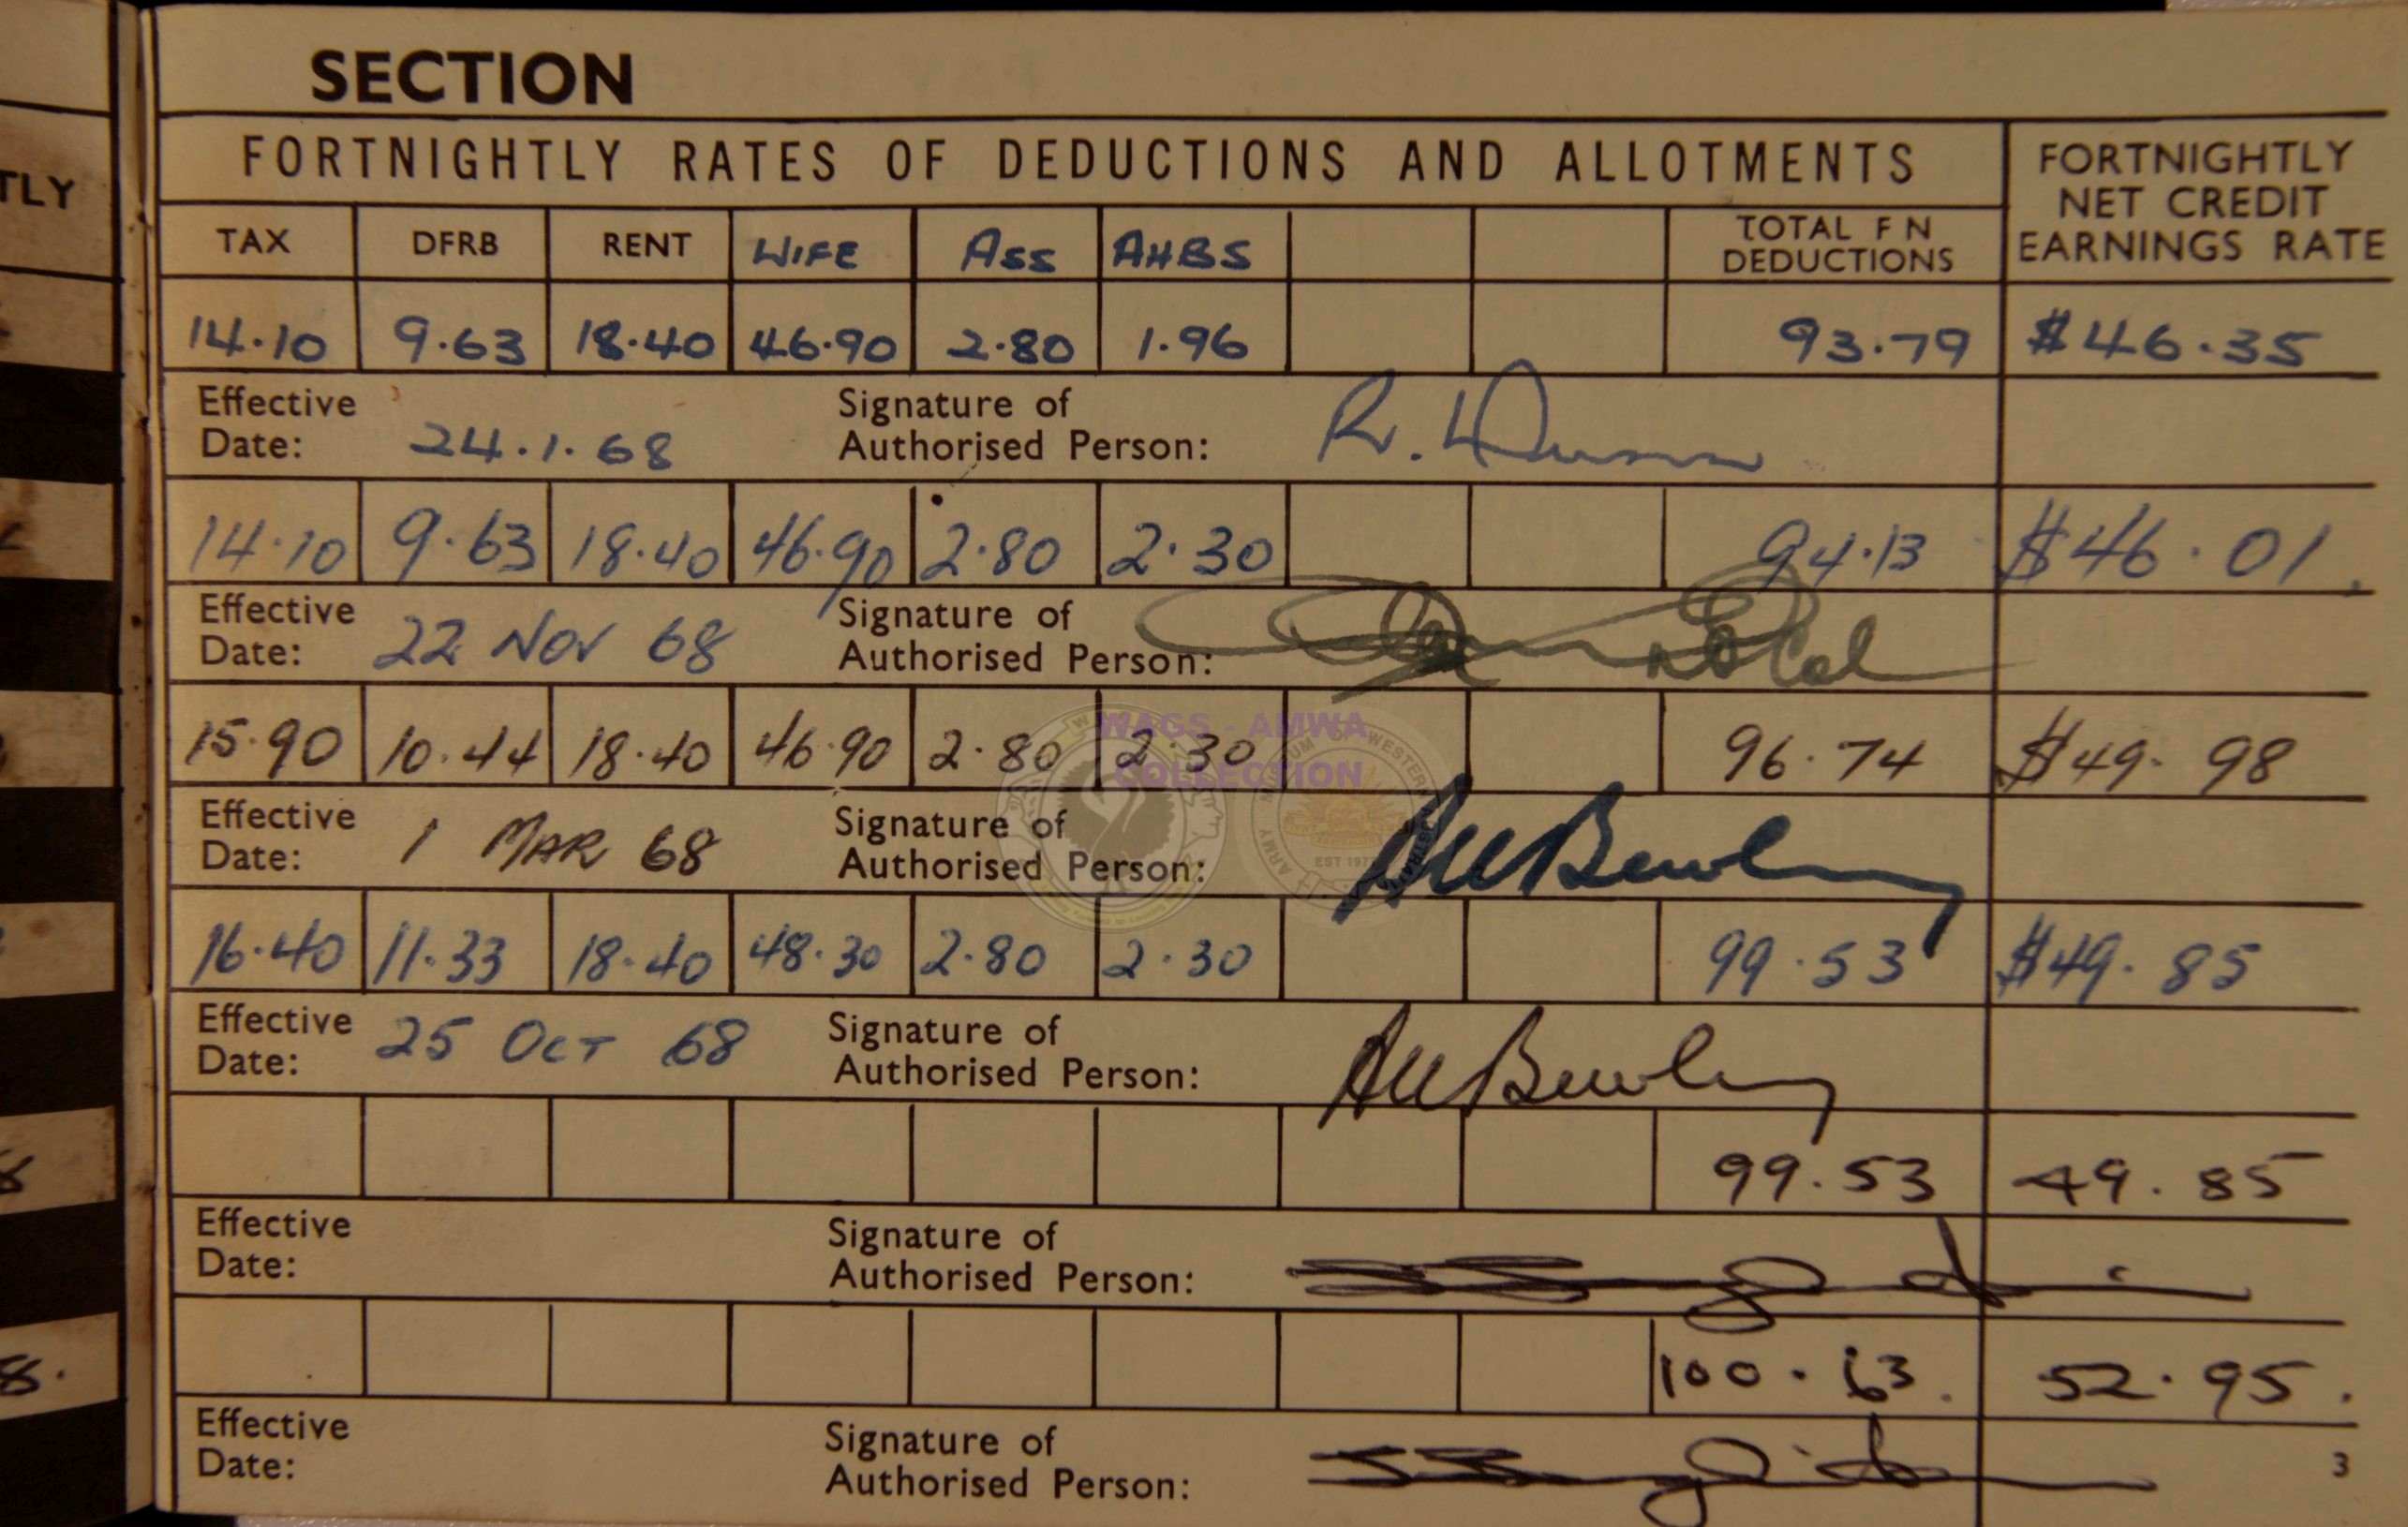 SECTION
FORTNIGHTLY RATES OF DEDUCTIONS AND ALLOTMENTS
FORTNIGHTLY NET CREDIT EARNINGS RATE
TLY
TAX DFRB RENT WIFE ASS AHBS TOTAL F N DEDUCTIONS
14.10 9.63 18.40 46.90 2.80 1.96 93.79 $46.35
Effective Date: 24.1.68 Signature of Authorised Person: R.
14.10 9.63 18.40 46.90 2.80 2.30 94.13 $46.01
Effective Date: 22 NOV 68 Signature of Authorised Person:
15.90 10.44 18.40 46.90 2.80 2.30 96.74 $49.98
WAGS - AMWA COLLECTION
Effective Date: 1 MAR 68 Signature of Authorised Person:
EST 1977
16.40 11.33 18.40 48.30 2.80 2.30 99.53 $49.85
Effective Date: 25 OCT 68 Signature of Authorised Person:
99.53 49.85
Effective Date: Signature of Authorised Person:
100.63. 52.95.
8.
Effective Date: Signature of Authorised Person:
3